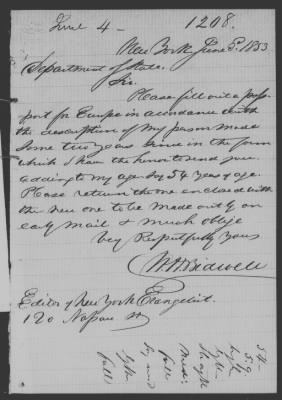 June 4 - 1208.
New York June 3. 1853
Department of State.
Sir.
Please fill out a pass-
port for Europe in accordance with
the description of my person made
some two years since in the form
which I have the honor to send you.
adding to my age say 54 years of age.
Please return the one enclosed with
the new one to be made out by an
early mail & much oblige
Very Respectfully Yours
W. H. Bidwell
Editor of New York Evangelist.
120 Nassau st
54 -
5.9
high
light
Straight
Med.
full
full